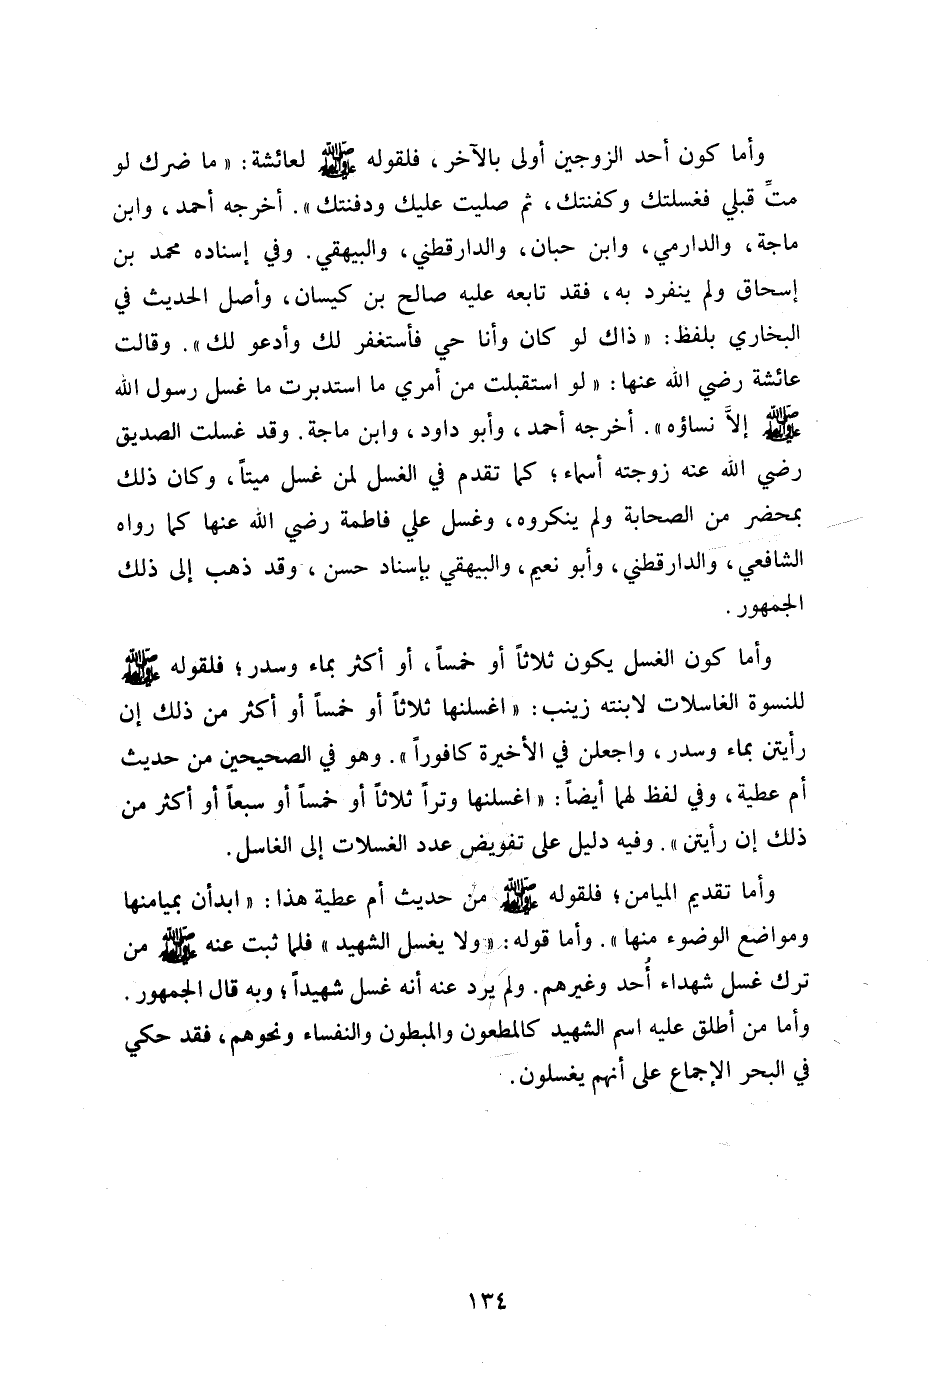 وأما كون أحد الزوجين أولى بالآخر، فلقوله ﷺ لعائشة: « ما ضرك لو
متِّ قبلي فغسلتك وكفنتك، ثم صليت عليك ودفنتك ». أخرجه أحمد، وابن
ماجة، والدارمي، وابن حبان، والدارقطني، والبيهقي. وفي إسناده محمد بن
إسحاق ولم ينفرد به، فقد تابعه عليه صالح بن كيسان، وأصل الحديث في
البخاري بلفظ: « ذاك لو كان وأنا حي فأستغفر لك وأدعو لك ». وقالت
عائشة رضي الله عنها: « لو استقبلت من أمري ما استدبرت ما غسل رسول الله
ﷺ إلاَّ نساؤه ». أخرجه أحمد، وأبو داود، وابن ماجة. وقد غسلت الصديق
رضي الله عنه زوجته أسماء؛ كما تقدم في الغسل لمن غسل ميتاً، وكان ذلك
بمحضر من الصحابة ولم ينكروه، وغسل علي فاطمة رضي الله عنها كما رواه
الشافعي، والدارقطني، وأبو نعيم، والبيهقي بإسناد حسن، وقد ذهب إلى ذلك
الجمهور.
وأما كون الغسل يكون ثلاثاً أو خمساً، أو أكثر بماء وسدر؛ فلقوله ﷺ
للنسوة الغاسلات لابنته زينب: « اغسلنها ثلاثاً أو خمساً أو أكثر من ذلك إن
رأيتن بماء وسدر، واجعلن في الأخيرة كافوراً ». وهو في الصحيحين من حديث
أم عطية، وفي لفظ لهما أيضاً: « اغسلنها وتراً ثلاثاً أو خمساً أو سبعاً أو أكثر من
ذلك إن رأيتن ». وفيه دليل على تفويض عدد الغسلات إلى الغاسل.
وأما تقديم الميامن؛ فلقوله ﷺ من حديث أم عطية هذا: « ابدأن بميامنها
ومواضع الوضوء منها ». وأما قوله: « ولا يغسل الشهيد » فلما ثبت عنه ﷺ من
ترك غسل شهداء أُحد وغيرهم. ولم يرد عنه أنه غسل شهيداً؛ وبه قال الجمهور.
وأما من أطلق عليه اسم الشهيد كالمطعون والمبطون والنفساء ونحوهم، فقد حكي
في البحر الإجماع على أنهم يغسلون.
١٣٤